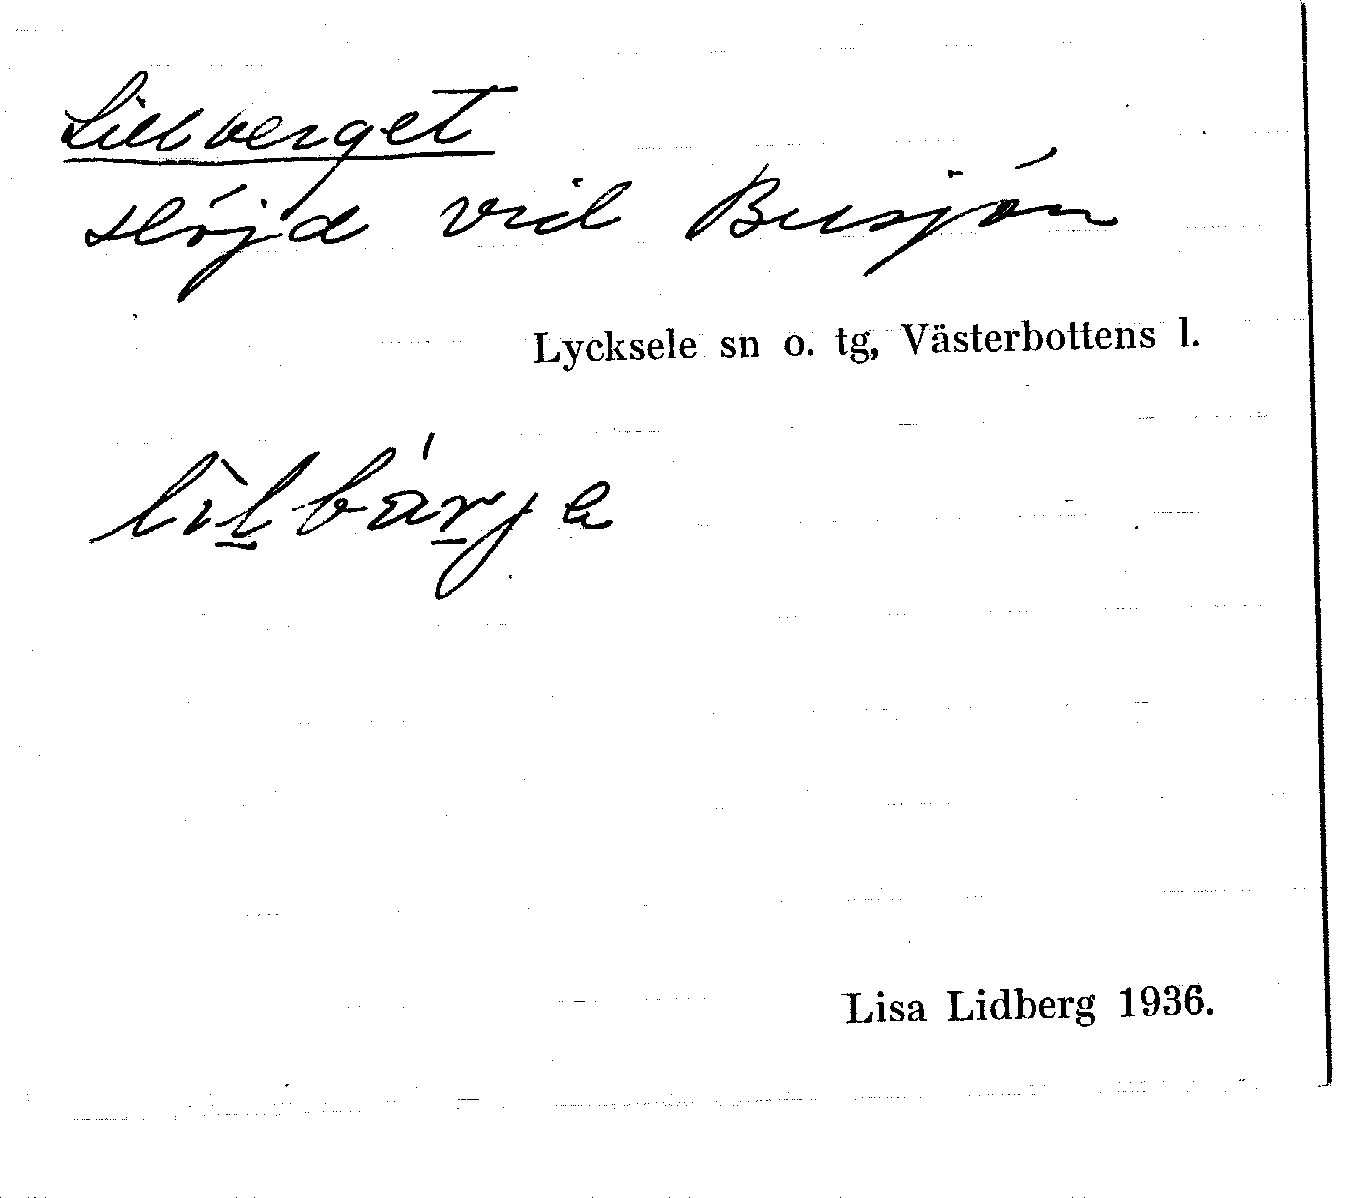 Lillberget
slöjd vid Busjön
Lycksele sn o. tg, Västerbottens l.
lìl̲bár̲ja
Lisa Lidberg 1936.